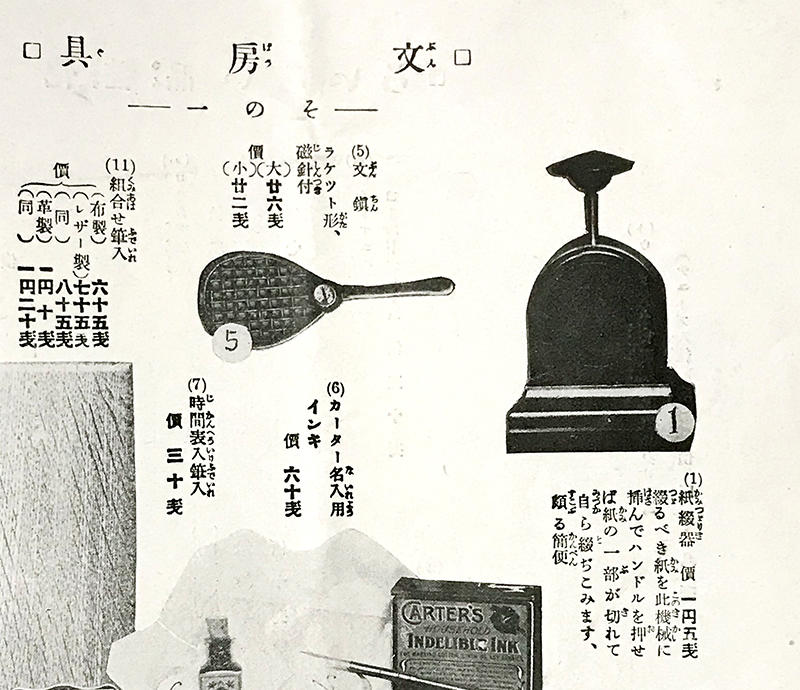 □文房具□
その一
(1)紙綴器 價 一円五戔
綴るべき紙を此機械に
揷んでハンドルを押せ
ば紙の一部が切れて
自ら綴ぢこみます、
頗る簡便
1
(5)文鎭
ラケツト形、
磁針付
價
(大)廿六戔
(小)廿二戔
5
(6)カーター名入用
インキ
價 六十戔
(7)時間表入筆入
價 三十戔
(11)組合せ筆入
價
(布製)六十五戔
(レザー製)七十五戔
(同)八十五戔
(革製)一円十戔
(同)一円二十戔
CARTER'S
INDELIBLE INK